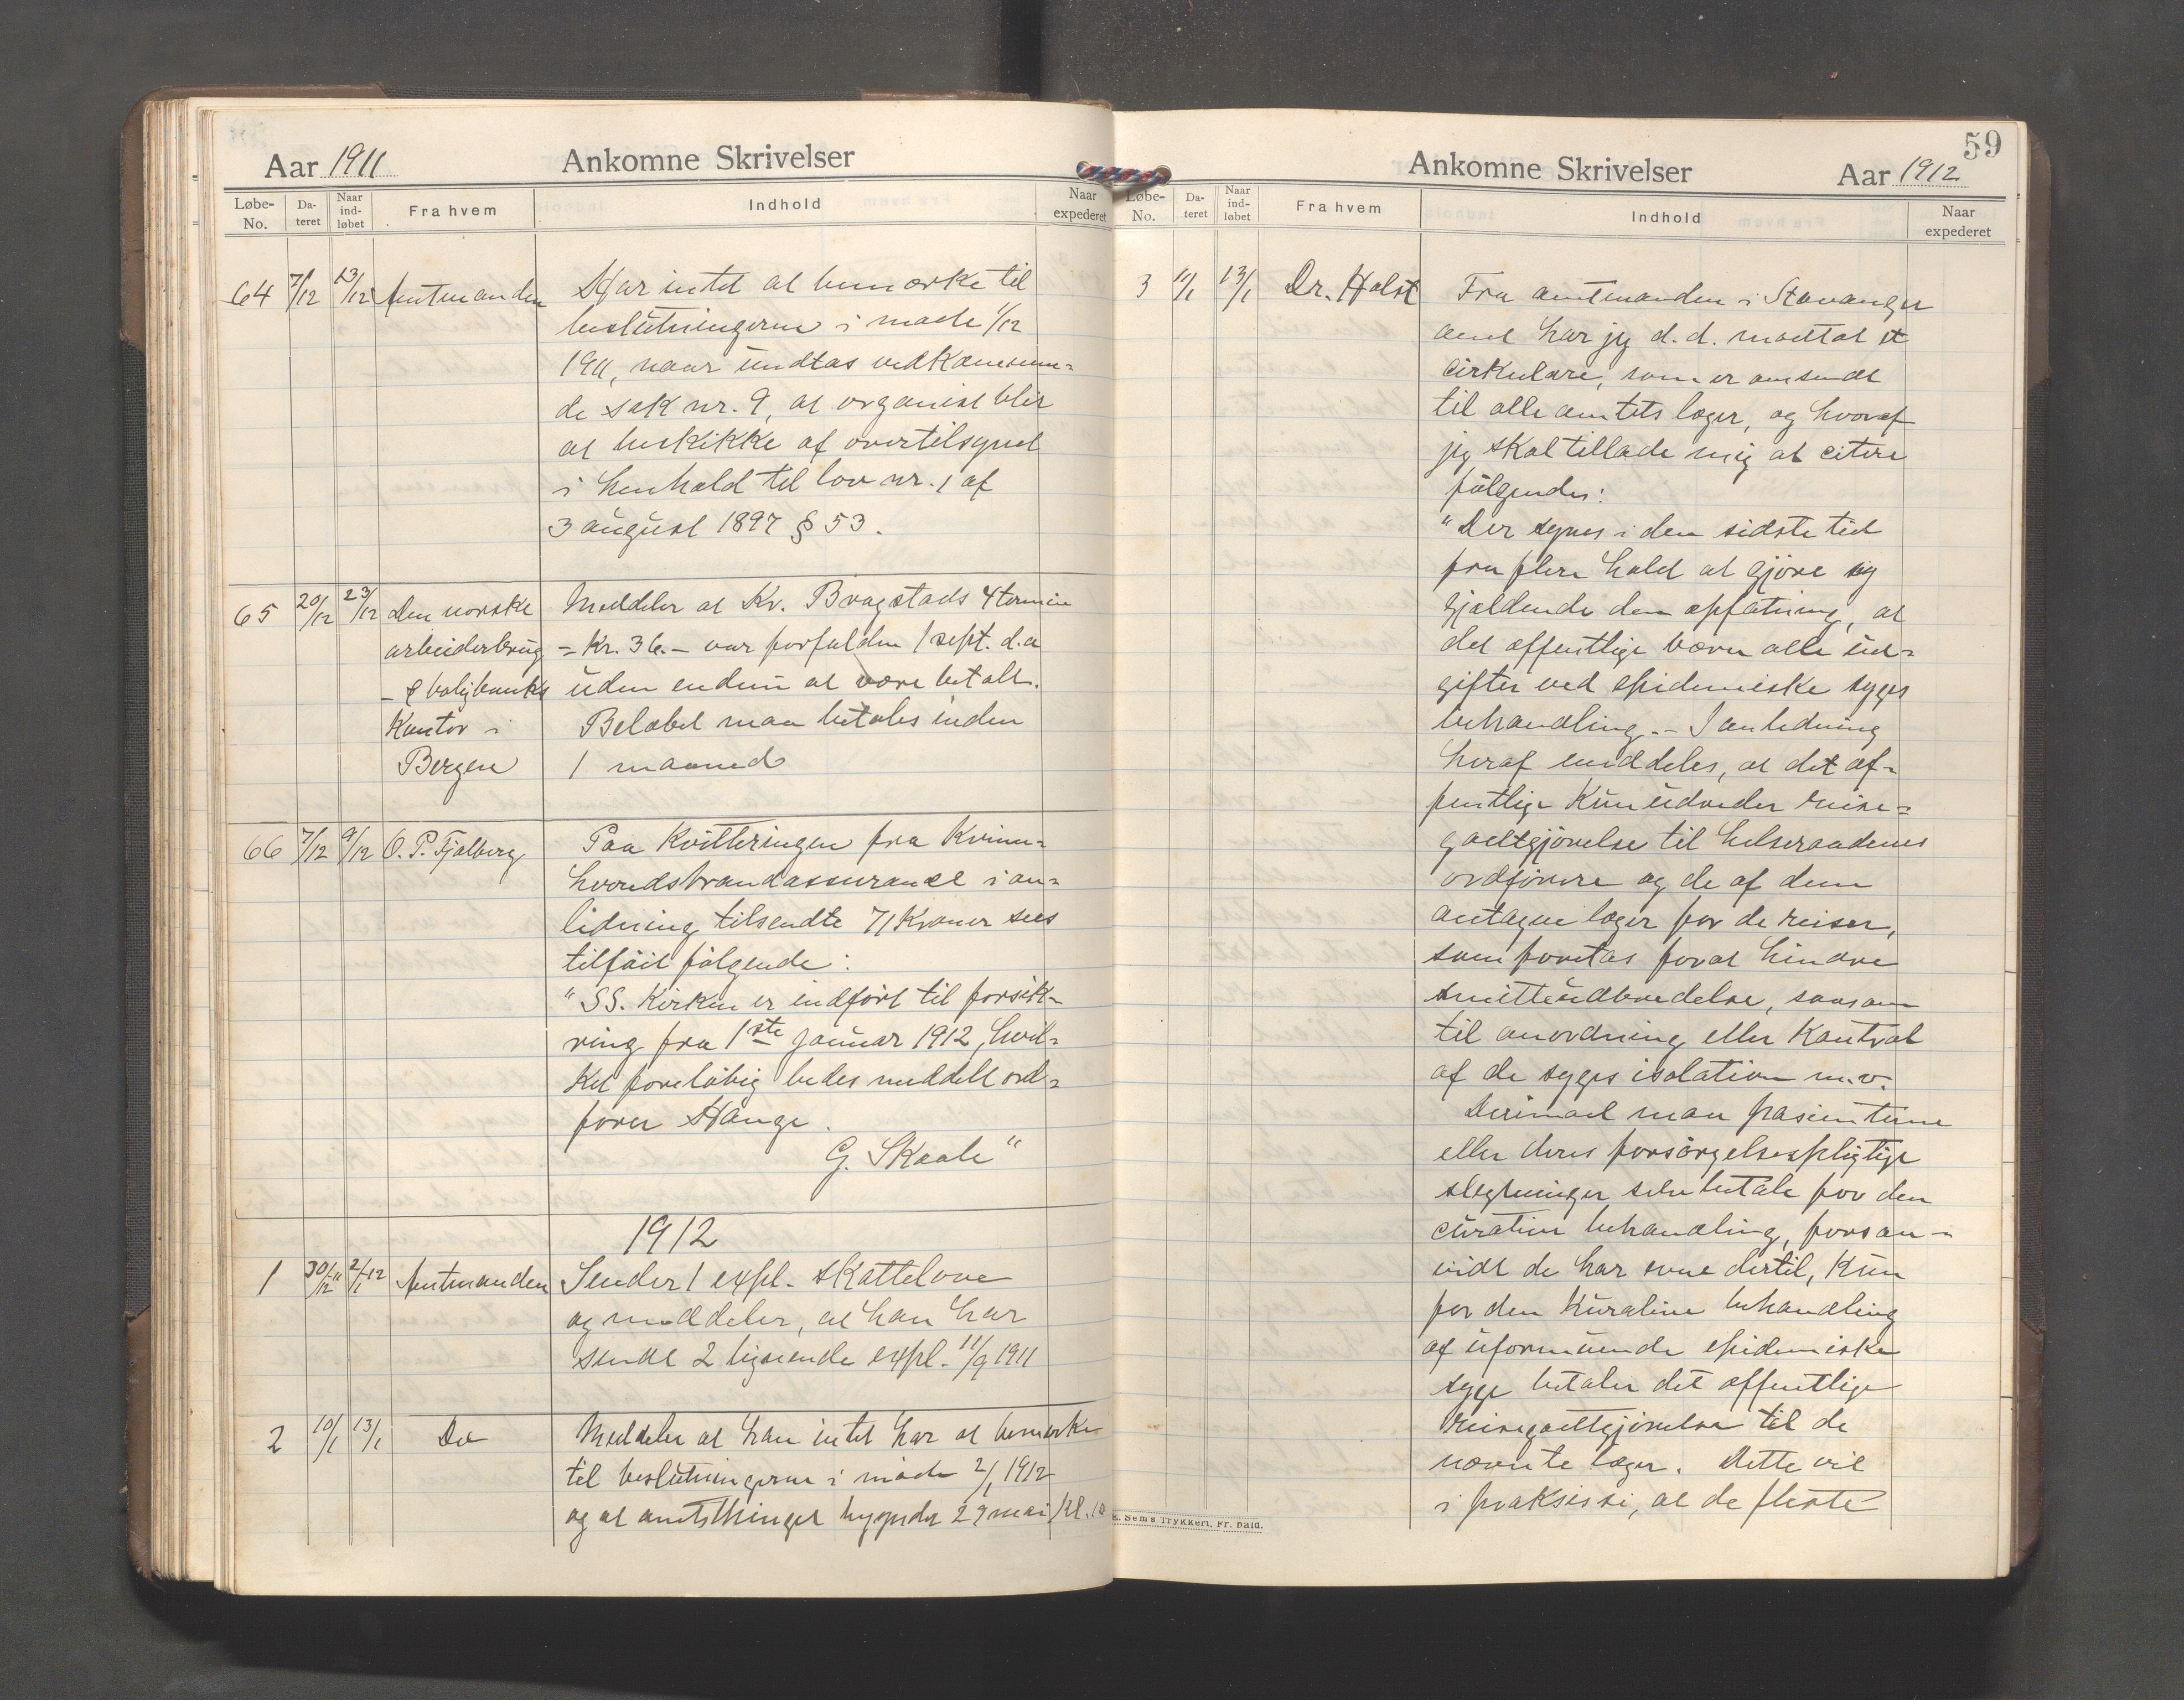 Aar 1911 Ankomne Skrivelser
Løbe-No. Da-teret Naar ind-løbet Fra hvem Indhold Naar expederet
64 7/12 13/12 Amtmanden Har intet at bemærke til
beslutningerne i møde 1/12
1911, naar undtas vedkommen=
de sak nr. 9, at organist blir
at beskikke af overtilsynet
i henhold til lov nr. 1 af
3 august 1897 § 53.
65 20/12 23/12 Den norske Meddeler at Kr. Bragstads 4 termin
arbeiderbrug = Kr. 36.– var forfalden 1 sept. d.a
- & boligbanks uden endnu at være betalt.
Kontor i Beløbet maa betales inden
Bergen 1 maaned
66 7/12 9/12 O. P. Fjalberg Paa kvitteringen fra Kvinn=
hveredsbrandassurance i an=
ledning tilsendte 71 Kroner sees
tilføit følgende:
"SS. Kirken er indført til forsik=
ring fra 1ste januar 1912, hvil=
ket foreløbig bedes meddelt ord=
fører Hauge.
G. Skaale"
1912
1 30/12 11 2/1 12 Amtmanden Sender 1 expl. skattelove
og meddeler, at han har
sendt 2 lignende expl. 11/9 1911
2 10/1 13/1 Do Meddeler at han intet har at bemærke
til beslutningerne i møde 2/1 1912
og at amtsthinget begynder 29 mai kl. 10
59
Ankomne Skrivelser Aar 1912
Løbe-No. Da-teret Naar ind-løbet Fra hvem Indhold Naar expederet
3 11/1 13/1 Dr. Holst Fra amtmanden i Stavanger
amt har jeg d.d. modtat et
cirkulære, som er omsendt
til alle amtets læger, og hvoraf
jeg skal tillade mig at citere
følgende:
"Der synes i den sidste tid
fra flere hold at gjøre sig
gjældende den opfatning, at
det offentlige bærer alle ud=
gifter ved epidemiske syges
behandling.– I anledning
heraf meddeles, at det of=
fentlige kun udreder reise=
godtgjørelse til helseraadenes
ordførere og de af dem
antagne læger for de reiser,
som foretas for at hindre
smitteudbredelse, saasom
til anordning eller kontrol
af de syges isolation m.v.
Derimod maa pasienterne
eller deres forsørgelsespligtige
slegtninger selv betale for den
curative behandling, forsaa=
vidt de har evne dertil, kun
for den kurative behandling
af uformuende epidemiske
syge betaler det offentlige
reisegodtgjørelse til de
nævnte læger. Dette vil
i praksis si, at de fleste
E. Sem's Trykkeri, Fr. hald.